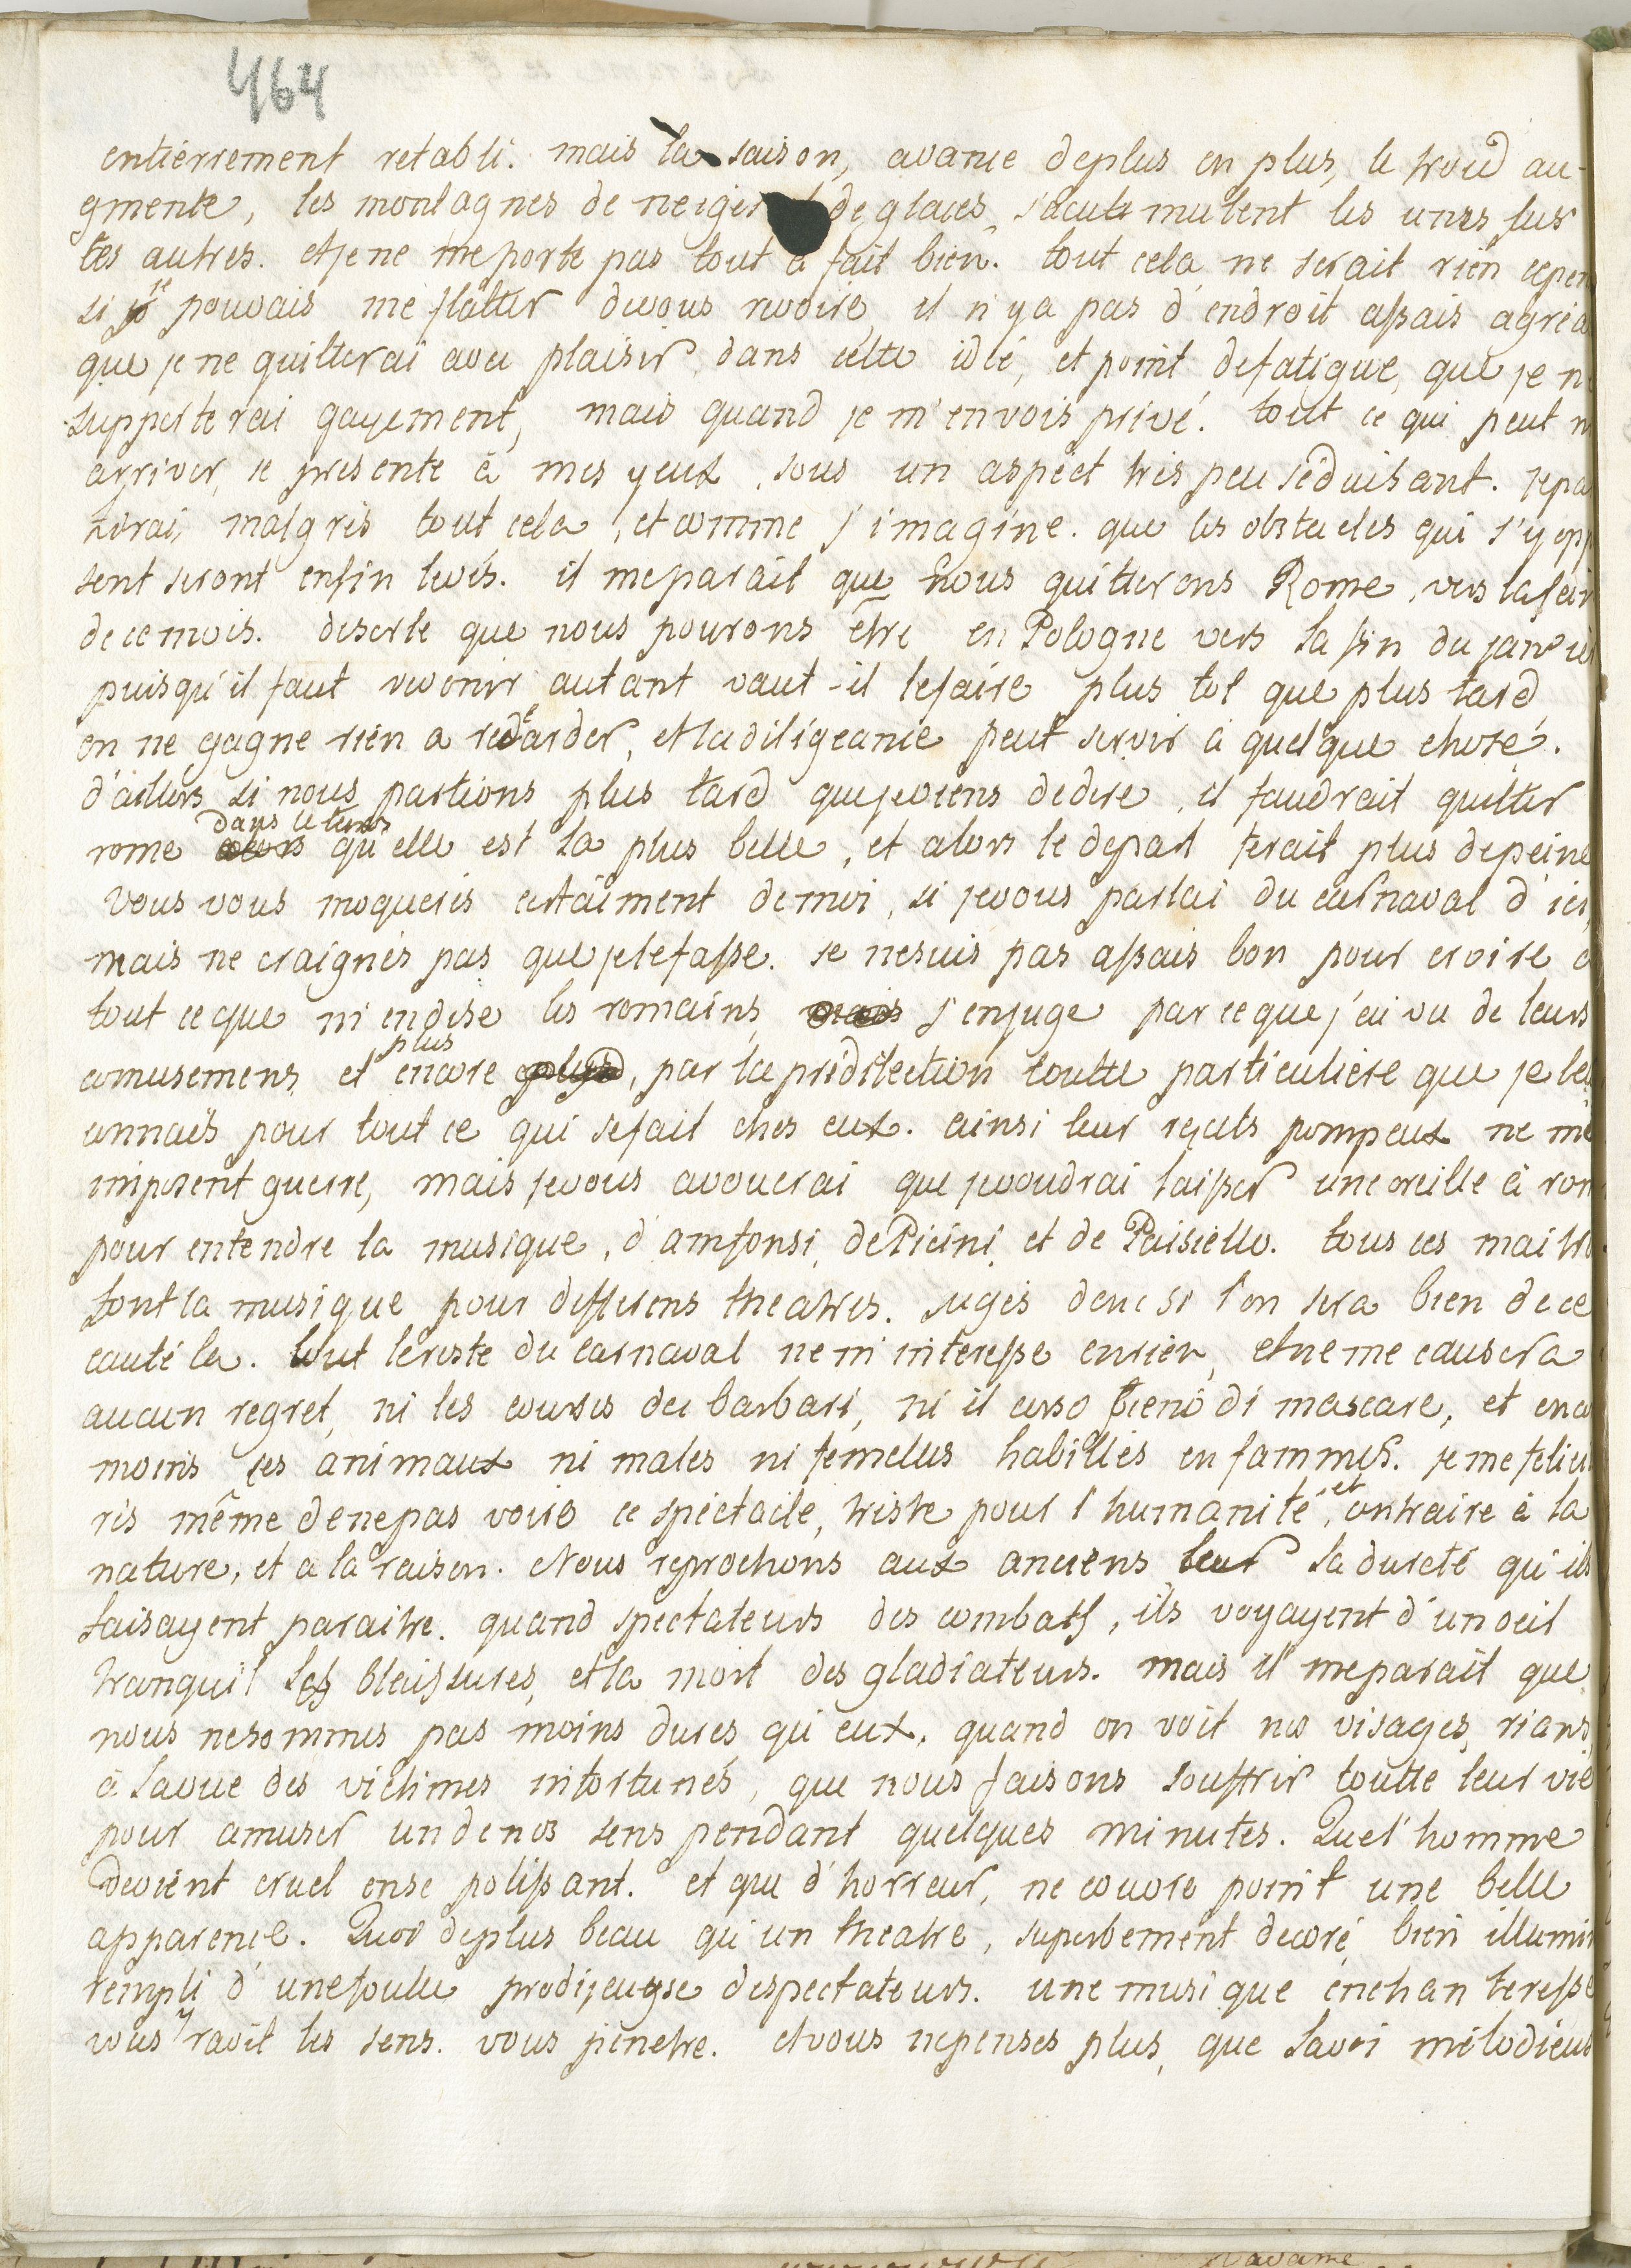 464
entiérrement retabli. mais la saison, avance deplus en plus, le froid au-
gmente, les montagnes de neiges de glaces, s'acculumulent les unes sur
les autres. et je ne me porte pas tout à fait bien. tout cela ne serait rien cepen
si je pouvais me flatter devous revoire, il n'y a pas d'endroit assais agréa
que je ne quitterai avec plaisir dans cette idé, et point defatigue, que je n
supporterai gayement, mais quand je m'envois privé. tout ce qui peut m
arriver, se presente à mes yeux, sous un aspect tres peu séduisant. je pa
tirai, malgrés tout cela, et comme j'imagine. que les obstacles qui s'y opp
sent seront enfin levés. il me parait que nous quitterons Rome, vers la fin
de ce mois. desorte que nous pourons être en Pologne vers la fin du janvie
puisqu'il faut revenir autant vaut-il lefaire plus tot que plus tard
on ne gagne rien a retarder, et la diligeance peut servir à quelque chose.
d'aillers si nous partions plus tard que je viens dedire, il faudrait quitter
rome dans le tems qu'elle est la plus belle, et alors le depart serait plus depeine
vous vous moquerés certaiment de moi, si je vous parlai du carnaval d'ici,
mais ne craignés pas que je le fasse. je ne suis pas assais bon pour croire a
tout ce que m'en dise les romains, j'enjuge par ce que j'ai vu de leurs
amusemens et encore plus, par la prédilection toutte particuliere que je leu
connais pour tout ce qui se fait chés eux. ainsi leur récits pompeux ne me
imposent guerre, mais je vous avouerai que je voudrai laisser une oreille à rom
pour entendre la musique, d'amfonsi, de Picini, et de Paisiello. tous ces maitre
font la musique pour differens theatres. jugés donc si l'on sera bien de ce
cauté la. tout le reste du carnaval ne m'interesse en rien, et ne me causera
aucun regret, ni les courses dei barbari, ni il corso pieno di mascare, et enco
moins ces animaux ni males ni femelles habillés en fammes. je me felici
rés même de ne pas voire ce spéctacle, triste pour l'humanité, et contraire à la
nature, et a la raison. Nous reprochons aux anciens la dureté qu'ils
faisayent paraitre. quand spectateurs des combats, ils voyayent d'un oeil
tranquil les blaissures, et la mort des gladiateurs. mais il me parait que
nous ne sommes pas moins dures qu'eux, quand on voit nos visages rians,
à la vue des victimes infortunés, que nous faisons souffrir toutte leur vie
pour amuser un de nos sens pendant quelques minutes. Que l'homme
devient cruel en se polissant. et que d'horreur, ne couvre point une belle
apparence. Quoi deplus beau qu'un theatre, superbement decoré, bien illumin
rempli d'une foulle prodijeuse despectateurs. une musique enchanteresse
vous y ravit les sens. vous pénetre. et vous ne penses plus, que la voi mélodieus